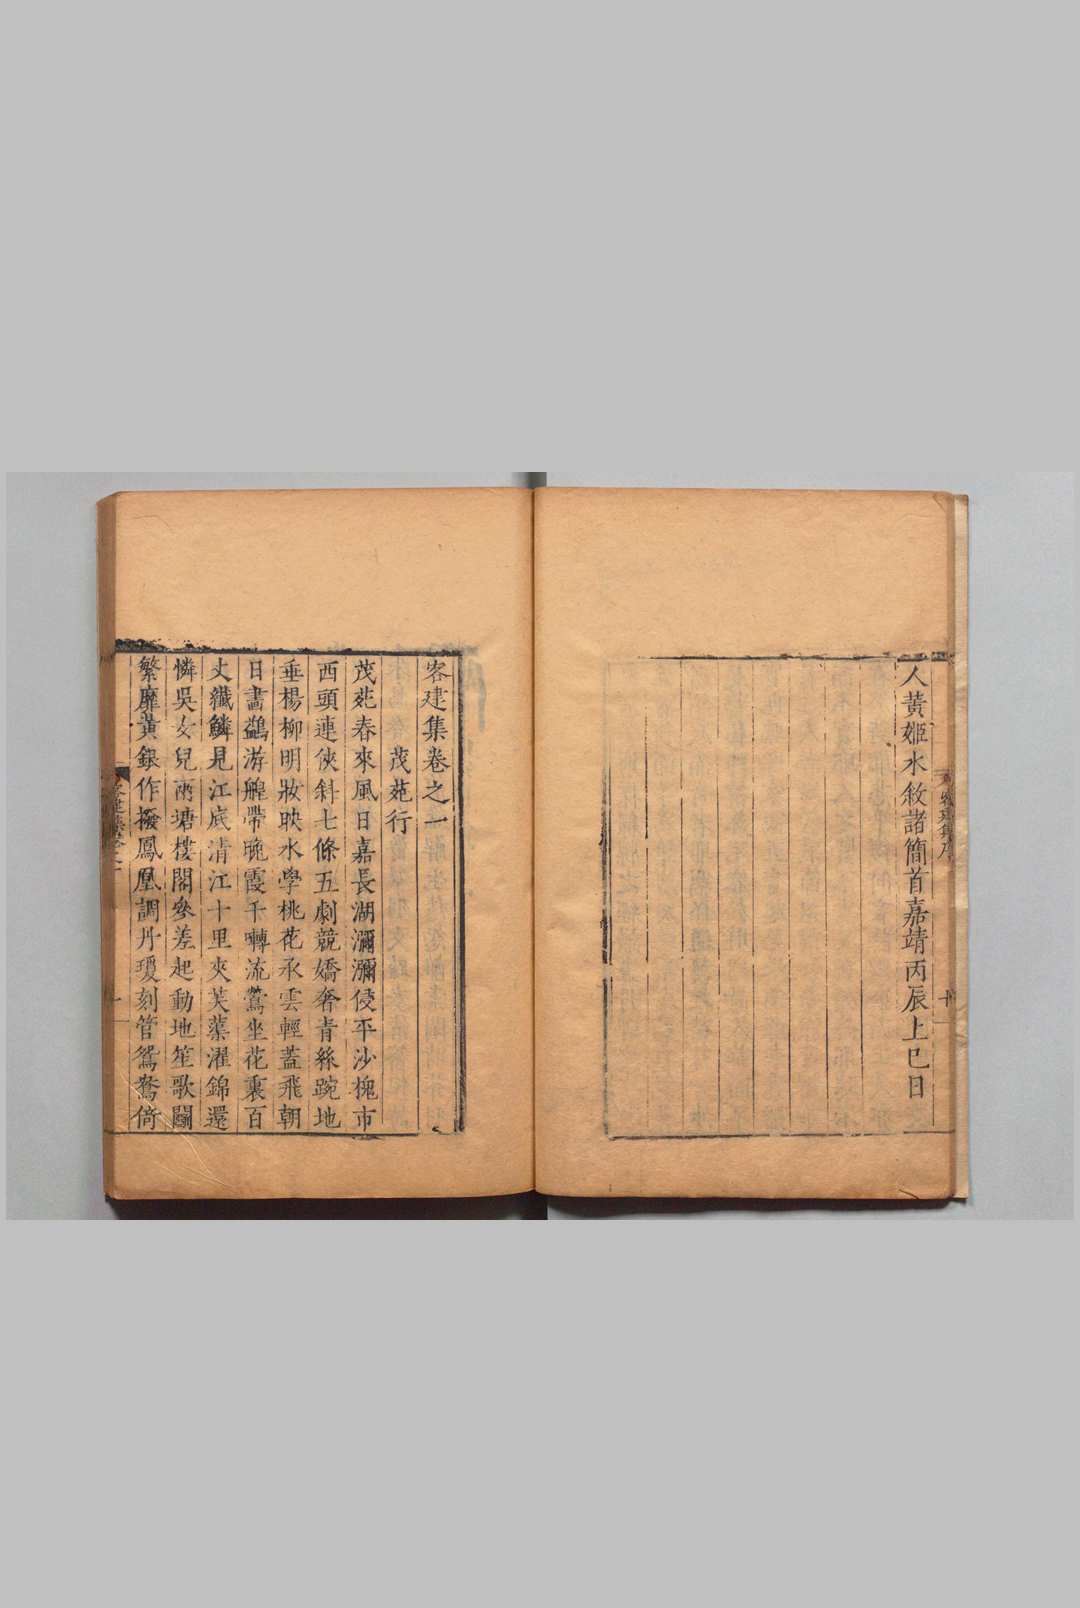 人黃姬水敘諸簡首嘉靖丙辰上巳日
客建集卷之一
茂苑行
茂苑春來風日嘉長湖瀰瀰侵平沙槐市
西頭連俠斜七條五劇競嬌奢青絲踠地
垂楊柳明妝映水學桃花承雲輕蓋飛朝
日畫鷁游艎帶晚霞千囀流鶯坐花裏百
丈纖鱗見江底清江十里夾芙蕖濯錦還
憐吳女兒兩塘樓閣參差起動地笙歌闐
繁靡黃銀作撥鳳凰調丹瓊刻管鴛鴦倚